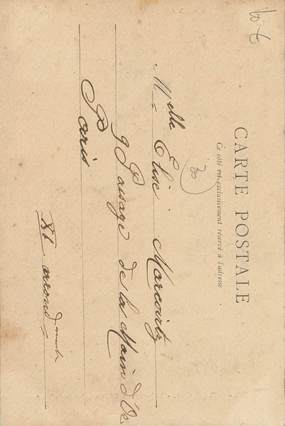 CARTE POSTALE
Ce côté est exclusivement réservé à l'adresse
Melle Elise
9 Passage de la Main d'Or
Paris
XI arrond